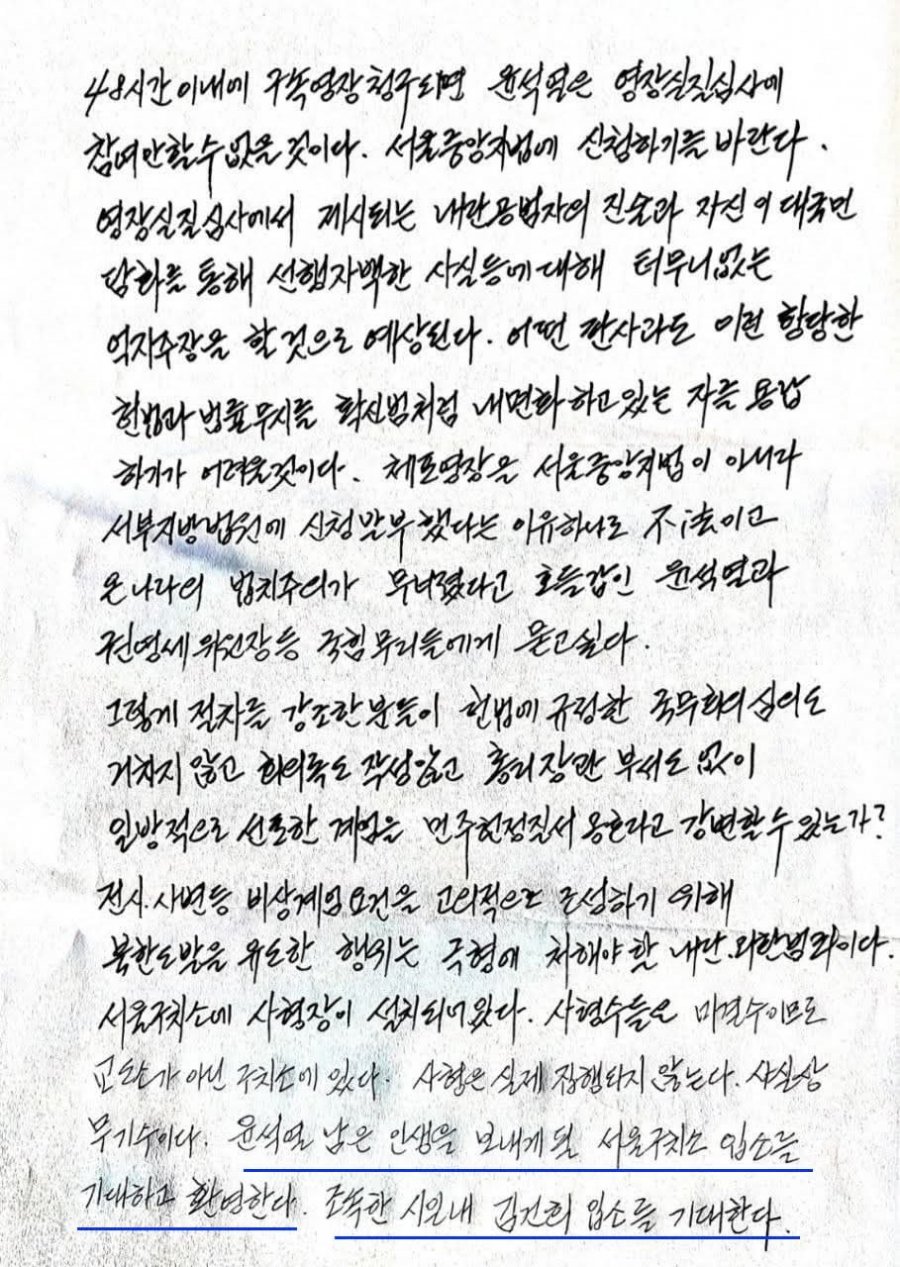 48시간 이내에 구속영장 청구되면 윤석열은 영장실질심사에
참여안할수 없을 것이다. 서울중앙지법에 신청하기를 바란다.
영장실질심사에서 제시되는 내란공범자의 진술과 자신이 대국민
담화를 통해 선행자백한 사실등에 대해 터무니없는
억지주장을 할 것으로 예상된다. 어떤 판사라도 이런 황당한
헌법과 법률무지를 확신범처럼 내면화하고 있는 자를 용납
하기가 어려울것이다. 체포영장을 서울중앙지법이 아니라
서부지방법원에 신청발부했다는 이유하나로 不法이고
온나라의 법치주의가 무너졌다고 호들갑인 윤석열과
권영세 위원장등 국힘무리들에게 묻고싶다.
그렇게 절차를 강조한분들이 헌법에 규정한 국무회의 심의도
거치지 않고 회의록도 작성않고 총리장관 부서도 없이
일방적으로 선포한 계엄을 민주헌정질서 옹호라고 강변할 수 있는가?
전시.사변등 비상계엄요건을 고의적으로 조성하기 위해
북한도발을 유도한 행위는 극형에 처해야 할 내란.외환범죄이다.
서울구치소에 사형장이 설치되어있다. 사형수들은 미결수이므로
교도소가 아닌 구치소에 있다. 사형은 실제 집행되지 않는다. 사실상
무기수이다. 윤석열 남은 인생을 보내게 될 서울구치소 입소를
기대하고 환영한다. 조속한 시일내 김건희 입소를 기대한다.